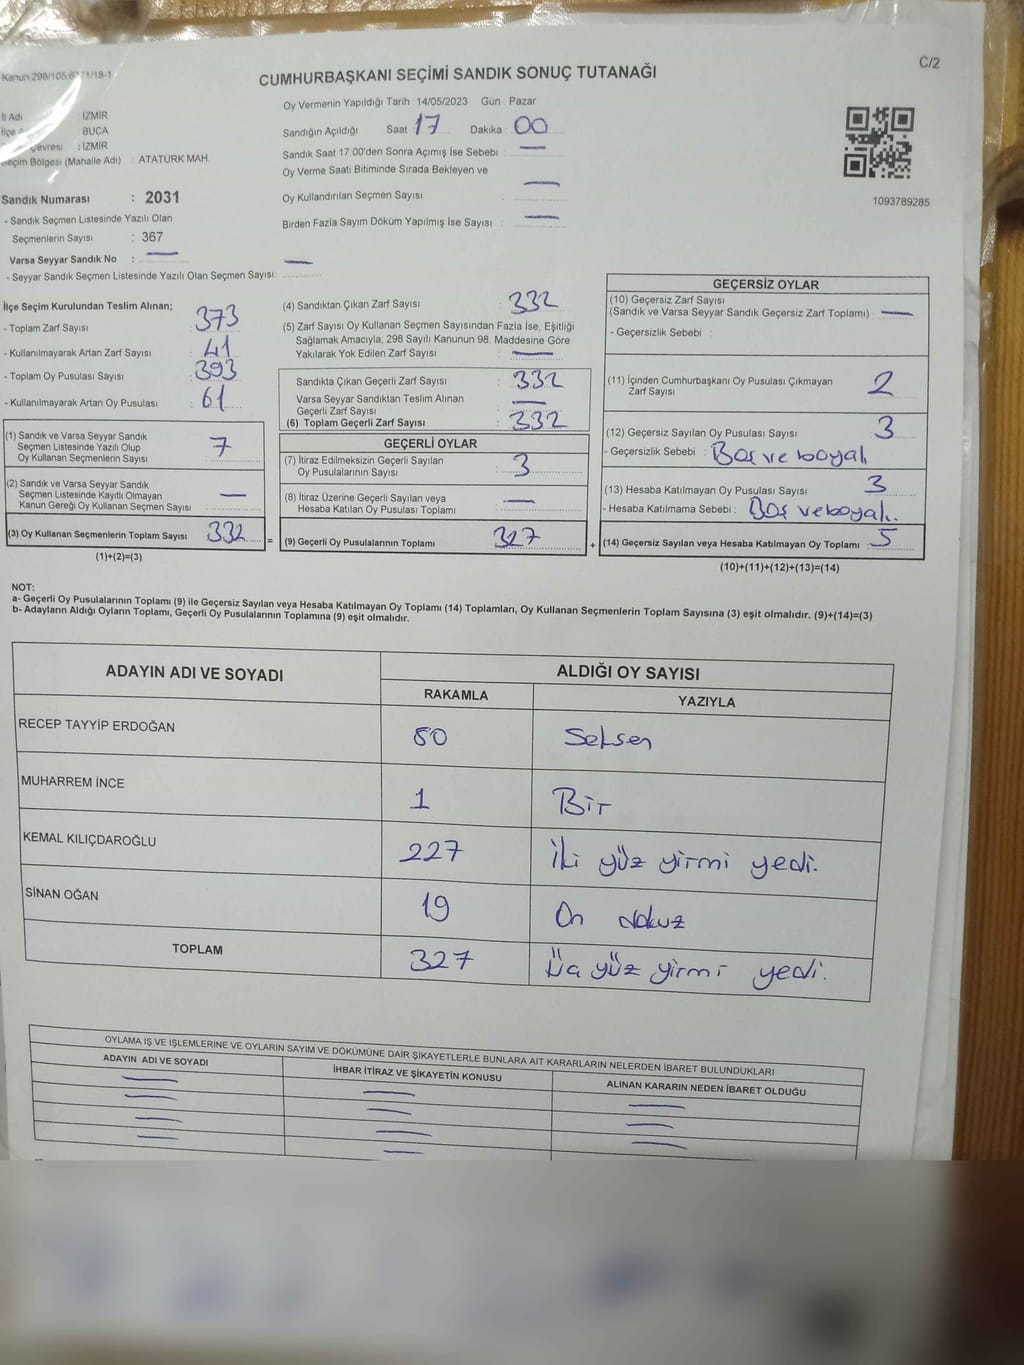 Kanun:298/105
/18-1
C/2
CUMHURBAŞKANI SEÇİMİ SANDIK SONUÇ TUTANAĞI
İl Adı İZMİR
İlçe BUCA
Çevresi : İZMİR
Seçim Bölgesi (Mahalle Adı) : ATATÜRK MAH.
Oy Vermenin Yapıldığı Tarih : 14/05/2023 Gün : Pazar
Sandığın Açıldığı Saat : 17 Dakika : 00
Sandık Saat 17:00'den Sonra Açımış İse Sebebi : —
Oy Verme Saati Bitiminde Sırada Bekleyen ve
Oy Kullandırılan Seçmen Sayısı : —
Birden Fazla Sayım Döküm Yapılmış İse Sayısı : —
1093789285
Sandık Numarası : 2031
- Sandık Seçmen Listesinde Yazılı Olan
Seçmenlerin Sayısı : 367
Varsa Seyyar Sandık No : —
- Seyyar Sandık Seçmen Listesinde Yazılı Olan Seçmen Sayısı: —
İlçe Seçim Kurulundan Teslim Alınan;
- Toplam Zarf Sayısı : 373
- Kullanılmayarak Artan Zarf Sayısı : 41
- Toplam Oy Pusulası Sayısı : 393
- Kullanılmayarak Artan Oy Pusulası : 61
(1) Sandık ve Varsa Seyyar Sandık
Seçmen Listesinde Yazılı Olup
Oy Kullanan Seçmenlerin Sayısı : 7
(2) Sandık ve Varsa Seyyar Sandık
Seçmen Listesinde Kayıtlı Olmayan
Kanun Gereği Oy Kullanan Seçmen Sayısı : —
(3) Oy Kullanan Seçmenlerin Toplam Sayısı : 332
(1)+(2)=(3)
=
(4) Sandıktan Çıkan Zarf Sayısı : 332
(5) Zarf Sayısı Oy Kullanan Seçmen Sayısından Fazla İse, Eşitliği
Sağlamak Amacıyla; 298 Sayılı Kanunun 98. Maddesine Göre
Yakılarak Yok Edilen Zarf Sayısı : —
Sandıkta Çıkan Geçerli Zarf Sayısı : 332
Varsa Seyyar Sandıktan Teslim Alınan
Geçerli Zarf Sayısı : —
(6) Toplam Geçerli Zarf Sayısı : 332
GEÇERLİ OYLAR
(7) İtiraz Edilmeksizin Geçerli Sayılan
Oy Pusulalarının Sayısı : 3
(8) İtiraz Üzerine Geçerli Sayılan veya
Hesaba Katılan Oy Pusulası Toplamı : —
(9) Geçerli Oy Pusulalarının Toplamı : 327
+
GEÇERSİZ OYLAR
(10) Geçersiz Zarf Sayısı
(Sandık ve Varsa Seyyar Sandık Geçersiz Zarf Toplamı) : —
- Geçersizlik Sebebi :
(11) İçinden Cumhurbaşkanı Oy Pusulası Çıkmayan
Zarf Sayısı : 2
(12) Geçersiz Sayılan Oy Pusulası Sayısı : 3
- Geçersizlik Sebebi : Boş ve boyalı
(13) Hesaba Katılmayan Oy Pusulası Sayısı : 3
- Hesaba Katılmama Sebebi : Boş ve boyalı.
(14) Geçersiz Sayılan veya Hesaba Katılmayan Oy Toplamı : 5
(10)+(11)+(12)+(13)=(14)
NOT:
a- Geçerli Oy Pusulalarının Toplamı (9) ile Geçersiz Sayılan veya Hesaba Katılmayan Oy Toplamı (14) Toplamları, Oy Kullanan Seçmenlerin Toplam Sayısına (3) eşit olmalıdır. (9)+(14)=(3)
b- Adayların Aldığı Oyların Toplamı, Geçerli Oy Pusulalarının Toplamına (9) eşit olmalıdır.
ADAYIN ADI VE SOYADI ALDIĞI OY SAYISI
RAKAMLA YAZIYLA
RECEP TAYYİP ERDOĞAN 80 Seksen
MUHARREM İNCE 1 Bir
KEMAL KILIÇDAROĞLU 227 İki yüz yirmi yedi.
SİNAN OĞAN 19 On dokuz
TOPLAM 327 Üç yüz yirmi yedi.
OYLAMA İŞ VE İŞLEMLERİNE VE OYLARIN SAYIM VE DÖKÜMÜNE DAİR ŞİKAYETLERLE BUNLARA AİT KARARLARIN NELERDEN İBARET BULUNDUKLARI
ADAYIN ADI VE SOYADI İHBAR İTİRAZ VE ŞİKAYETİN KONUSU ALINAN KARARIN NEDEN İBARET OLDUĞU